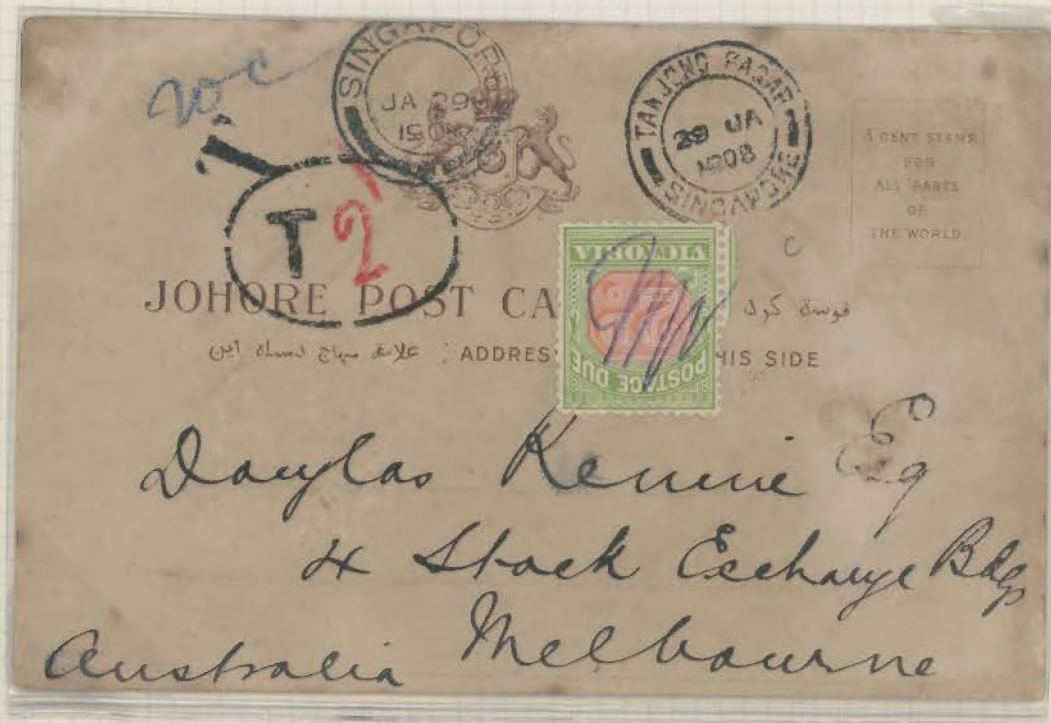 20c
SINGAPORE
JA 29
190
TANJONG PAGAR
29 JA
1908
SINGAPORE
3 CENT STAMP
FOR
ALL PARTS
OF
THE WORLD.
T 2
C
VICTORIA
POSTAGE DUE
JOHORE POST CA
فوست كرد
علامة سهاج دسبله اين : ADDRES HIS SIDE
Douglas Kennie Esq
4 Stock Exchange Bdgs
Melbourne
Australia